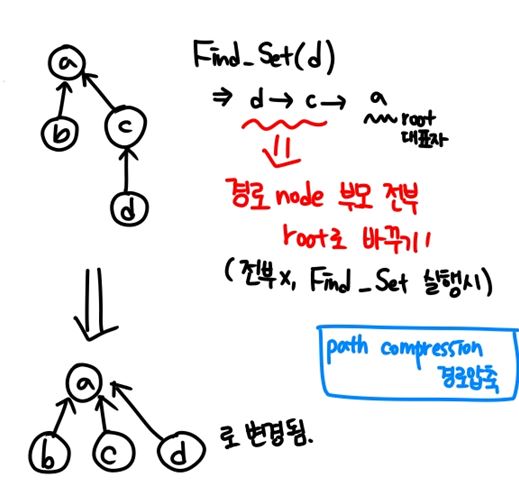 a
b
c
d
Find_Set(d)
⇒ d → c → a
root
대표자
경로 node 부모 전부
root로 바꾸기!
(전부x, Find_Set 실행시)
path compression
경로압축
a
b c d 로 변경됨.